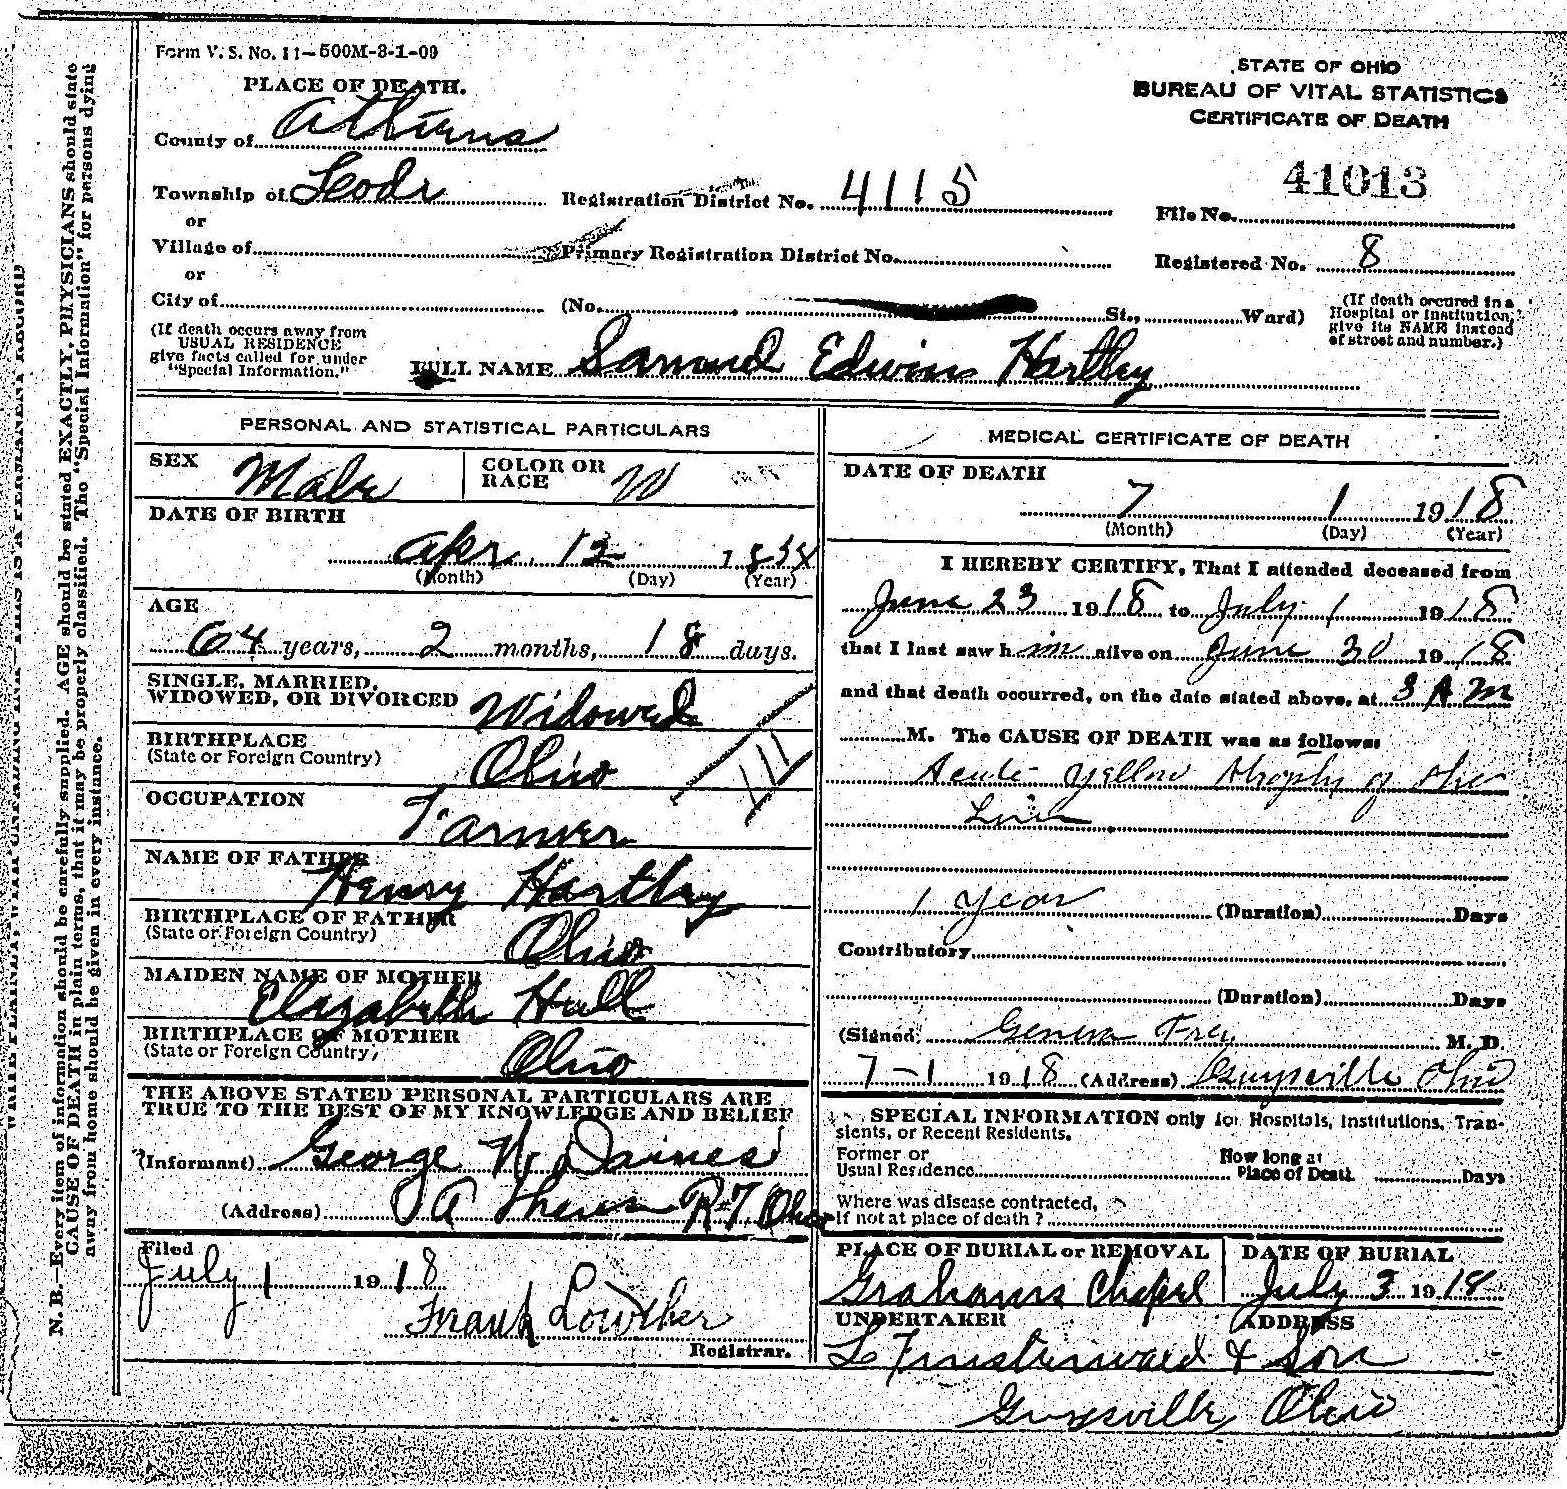 Form V. S. No. 11—500M-3-1-09
PLACE OF DEATH.
STATE OF OHIO
BUREAU OF VITAL STATISTICS
CERTIFICATE OF DEATH
County of Athens
41013
Township of Lodi Registration District No. 4115 File No.
or
Village of Primary Registration District No. Registered No. 8
or
City of (No. , St., Ward) (If death occured in a Hospital or Institution, give its NAME instead of street and number.)
(If death occurs away from
USUAL RESIDENCE
give facts called for under
"Special Information."
FULL NAME Samuel Edwin Hartley
PERSONAL AND STATISTICAL PARTICULARS
SEX Male COLOR OR RACE W
DATE OF BIRTH
Apr. 12
(Month) (Day) (Year)
AGE
64 years, 2 months, 18 days.
SINGLE, MARRIED,
WIDOWED, OR DIVORCED Widowed
BIRTHPLACE
(State or Foreign Country) Ohio
OCCUPATION
Farmer
NAME OF FATHER
Henry Hartley
BIRTHPLACE OF FATHER
(State or Foreign Country) Ohio
MAIDEN NAME OF MOTHER
Elizabeth Hull
BIRTHPLACE OF MOTHER
(State or Foreign Country) Ohio
THE ABOVE STATED PERSONAL PARTICULARS ARE
TRUE TO THE BEST OF MY KNOWLEDGE AND BELIEF
(Informant) George W Daines
(Address) Athens R7 Ohio
Filed
July 1 1918
Frank Lowther
Registrar.
MEDICAL CERTIFICATE OF DEATH
DATE OF DEATH
7 1 1918
(Month) (Day) (Year)
I HEREBY CERTIFY, That I attended deceased from
June 23 1918 to July 1 1918
that I last saw him alive on June 30 1918
and that death occurred, on the date stated above, at 3 AM
M. The CAUSE OF DEATH was as follows:
Acute Yellow Atrophy of the
Liver
1 Year (Duration) Days
Contributory
(Duration) Days
(Signed) Geneva Frey M. D.
7-1 1918 (Address) Guysville Ohio
SPECIAL INFORMATION only for Hospitals, Institutions, Tran-
sients, or Recent Residents.
Former or
Usual Residence
How long at
Place of Death Days
Where was disease contracted,
If not at place of death?
PLACE OF BURIAL or REMOVAL DATE OF BURIAL
Grahams Chapel July 3 1918
UNDERTAKER ADDRESS
L Finsterwald & Son
Guysville Ohio
N. B.—Every item of information should be carefully supplied. AGE should be stated EXACTLY. PHYSICIANS should state
CAUSE OF DEATH in plain terms, that it may be properly classified. The "Special Information" for persons dying
away from home should be given in every instance.